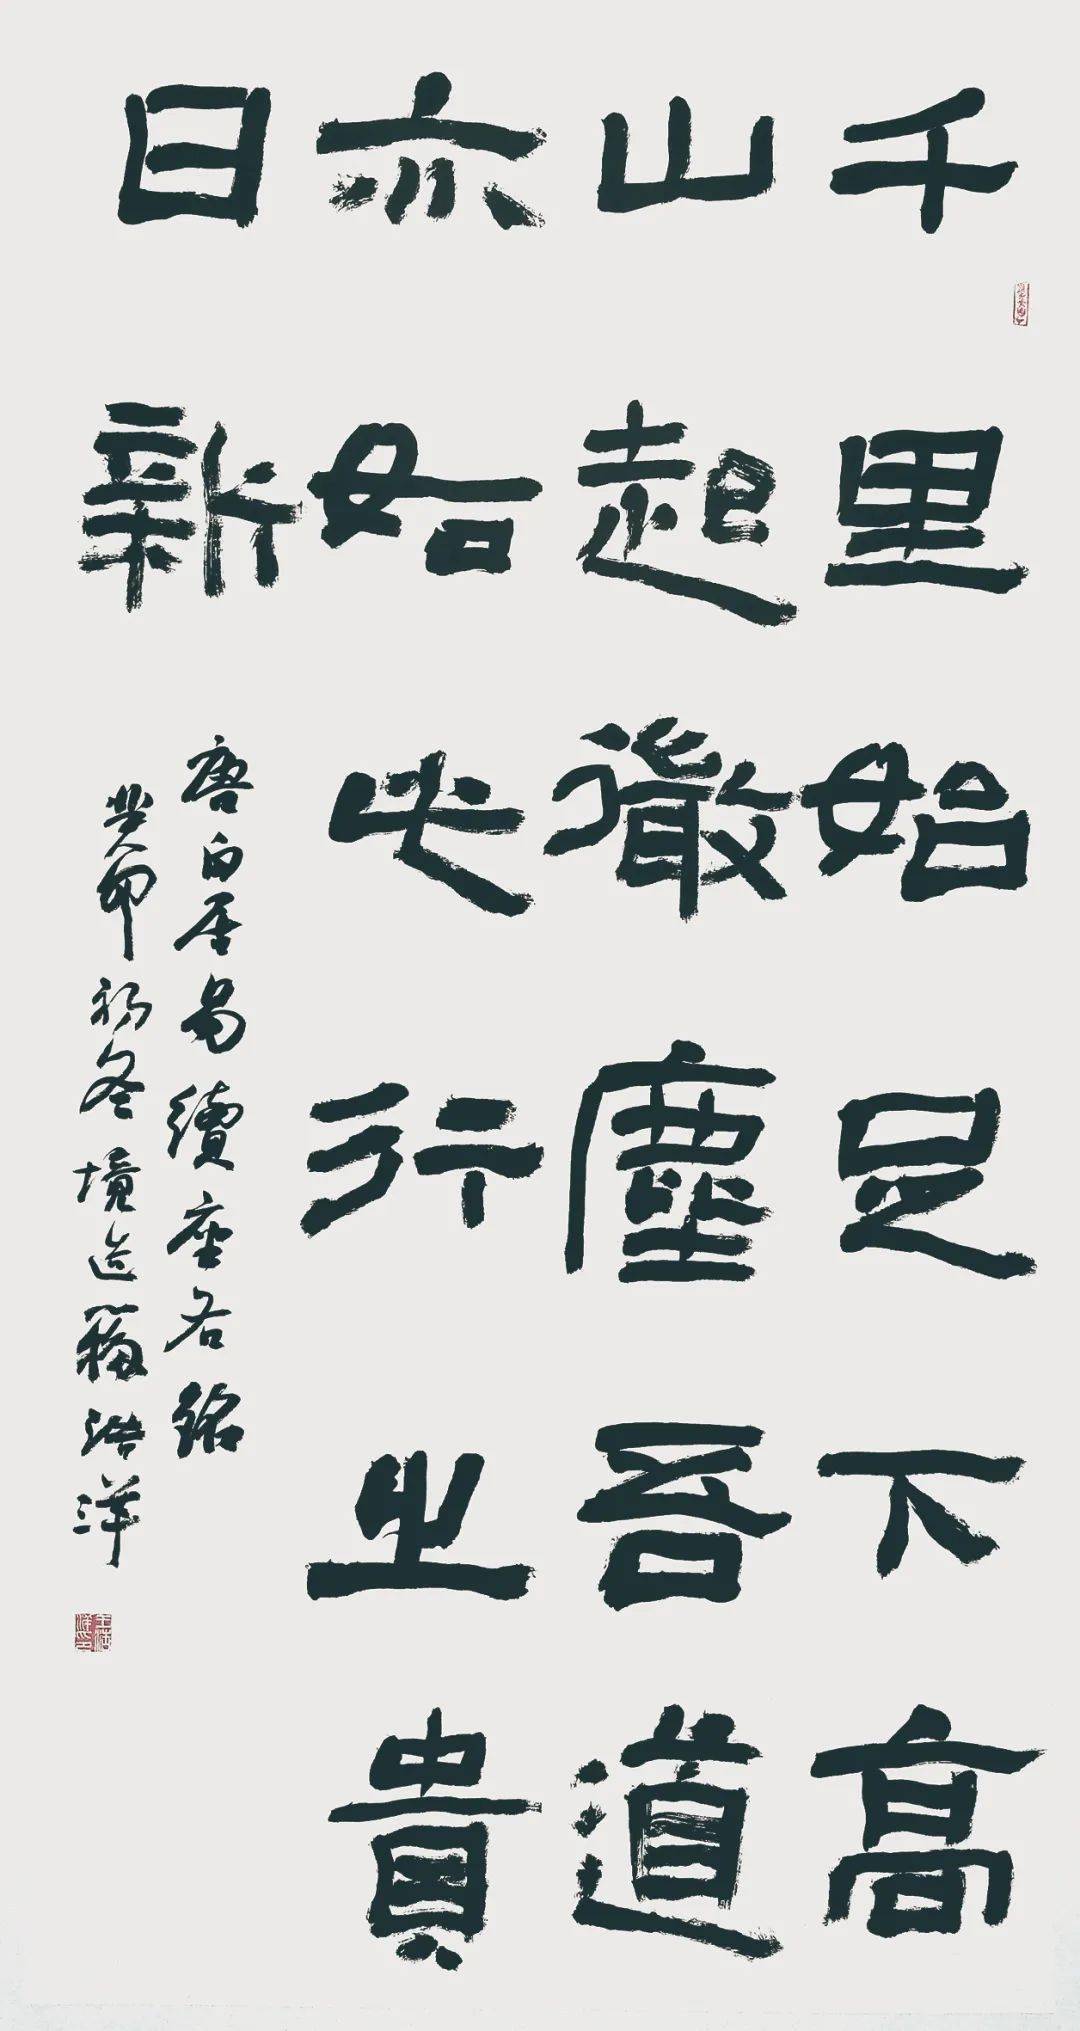 千里始足下高
山起微塵吾道
亦如此行之貴
日新
唐白居易續座右銘
癸卯初冬境造浩洋